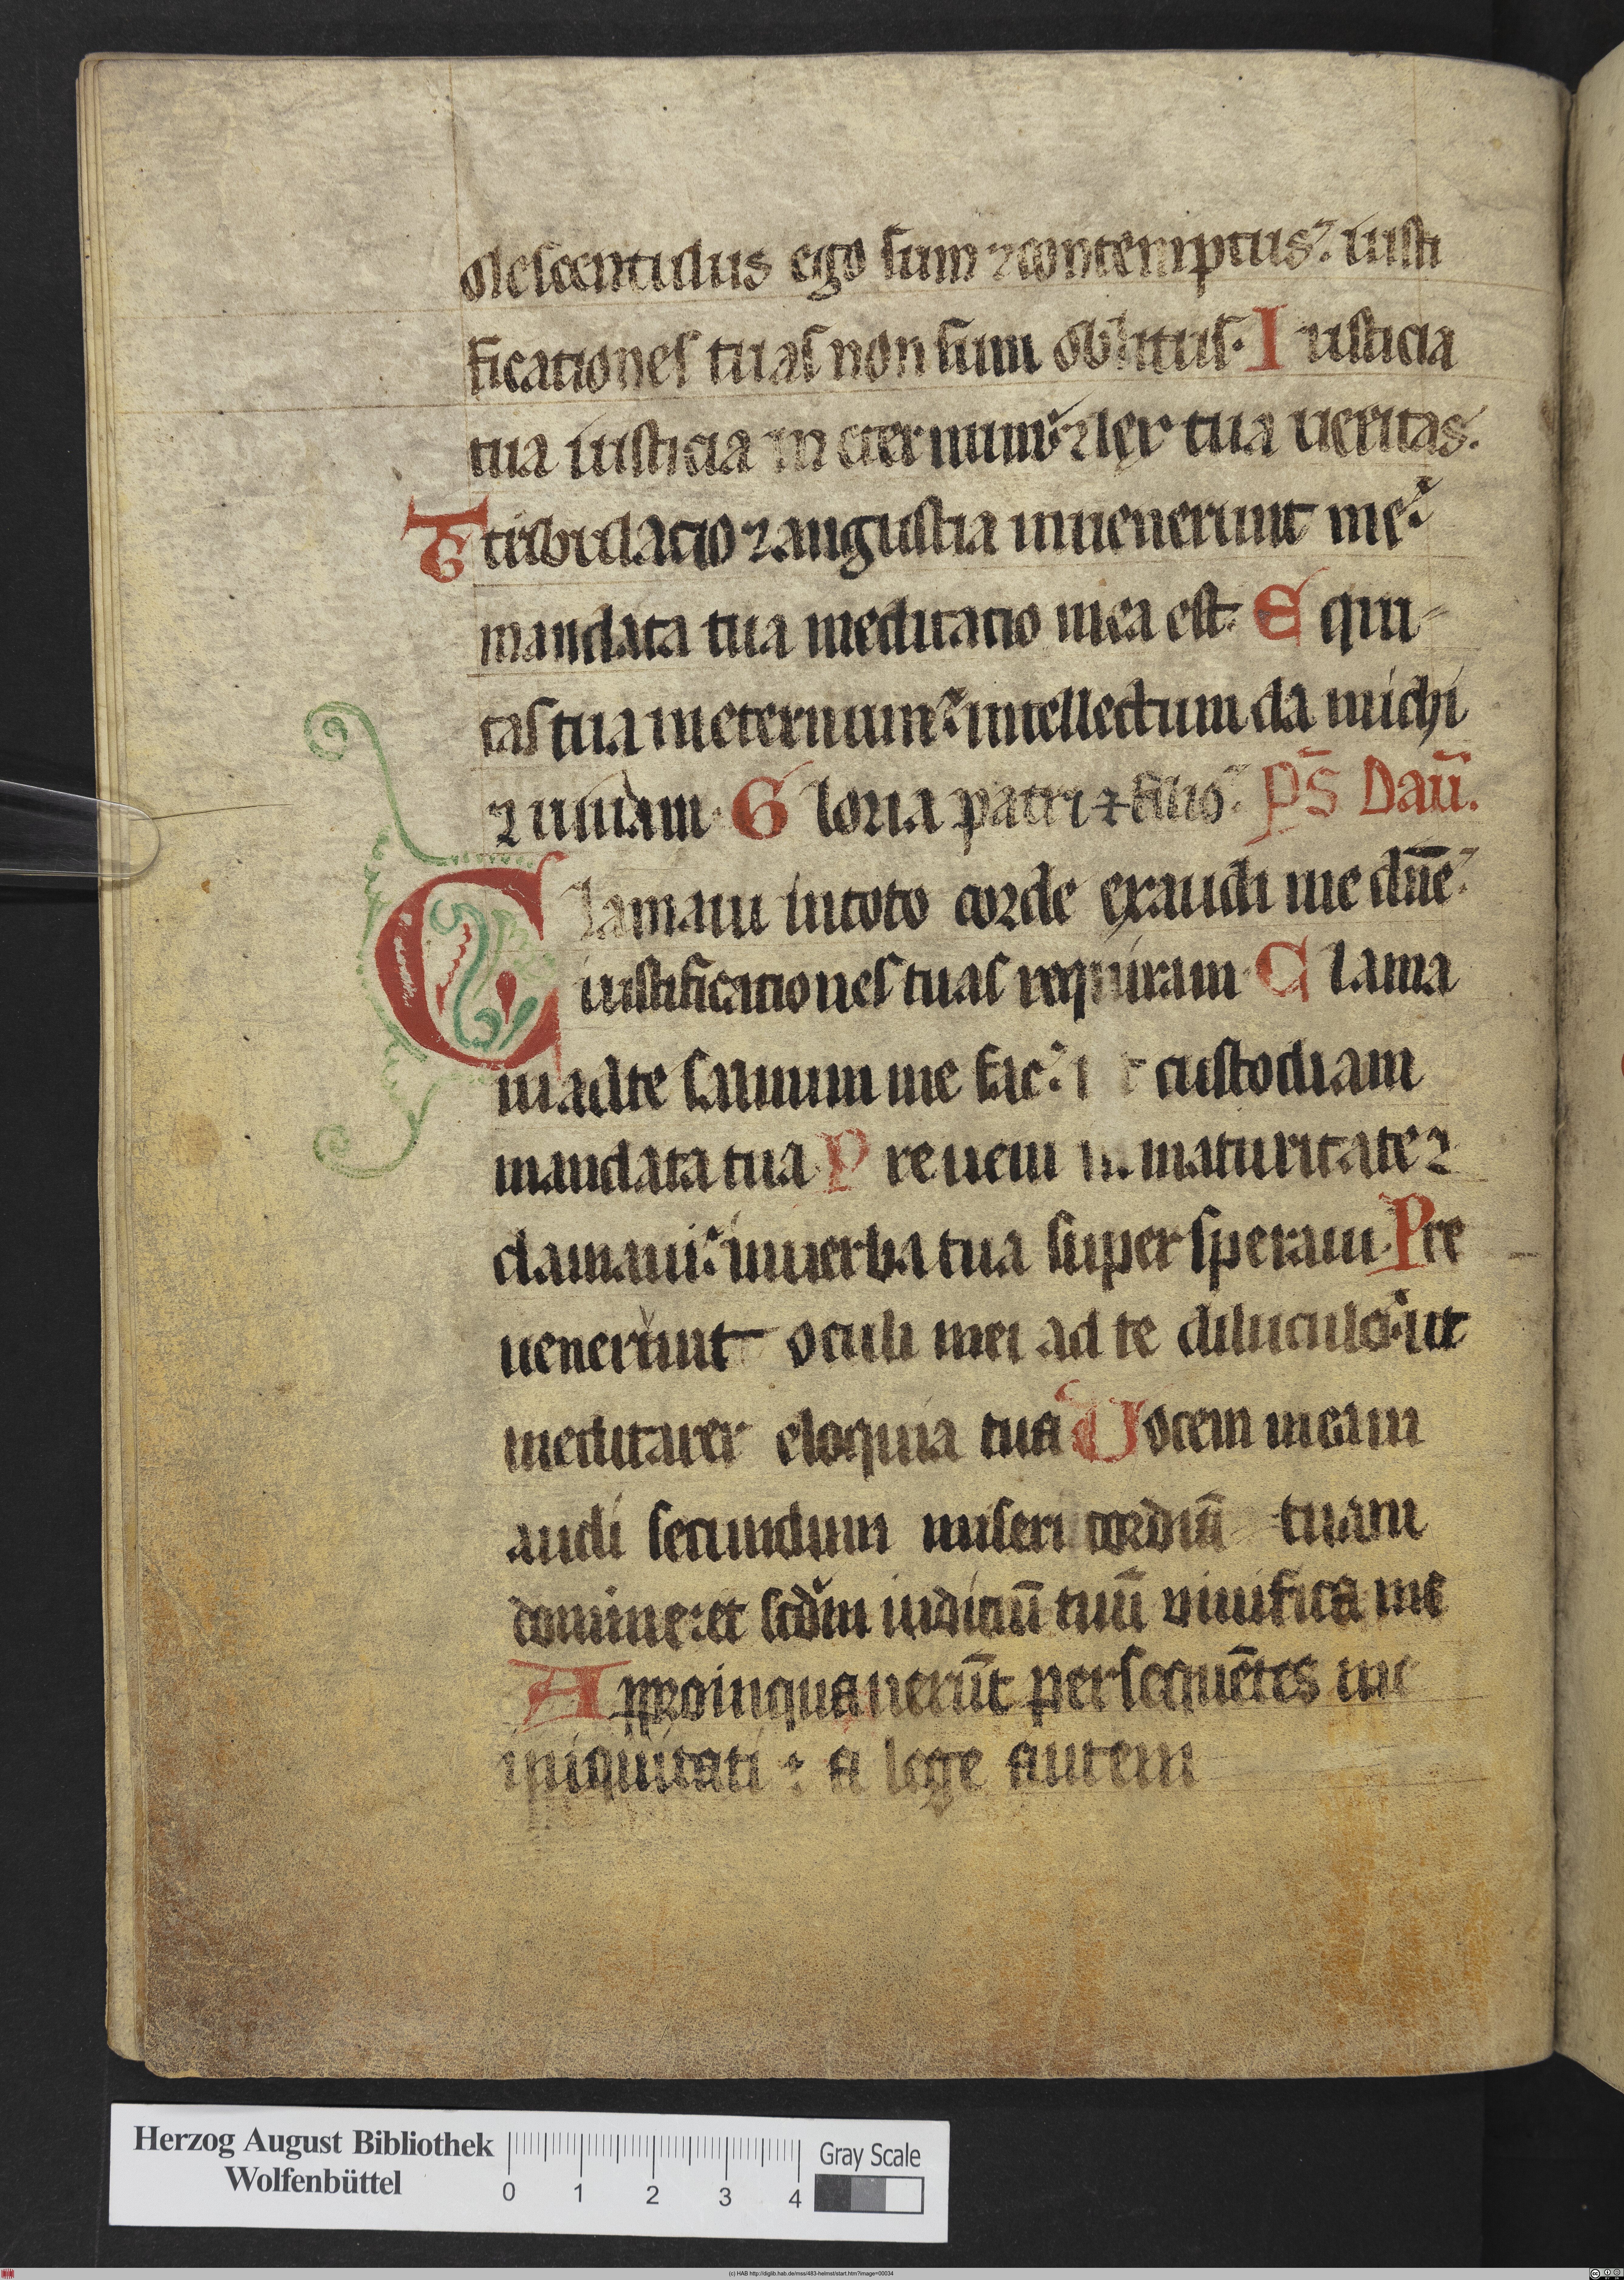 olescentulus ego sum ⁊ contemptus: iusti
ficationes tuas non sum oblitus. Iusticia
tua iusticia in eternum: ⁊ lex tua ueritas.
Ttribulacio ⁊ angustia inuenerunt me:
mandata tua meditacio mea est. Equi-
tas tua in eternum: intellectum da michi
⁊ uiuam. Gloria patri ⁊ filio. ps̄ Dauī.
Clamaui in toto corde exaudi me dn̄e:
iustificationes tuas requiram. Clama
ui ad te saluum me fac: custodiam
mandata tua. Preueni in maturitate ⁊
clamaui: in uerba tua supersperaui. Pre
uenerunt oculi mei ad te diluculo: ut
meditarer eloquia tua Uocem meam
audi secundum misericordiā tuam
domine: et scdm iudiciū tuū viuifica me
Appropinquauerūt persequētes me
iniquitati: a lege autem
Herzog August Bibliothek
Wolfenbüttel
0 1 2 3 4
Gray Scale
(c) HAB http://diglib.hab.de/mss/483-helmst/start.htm?image=00034